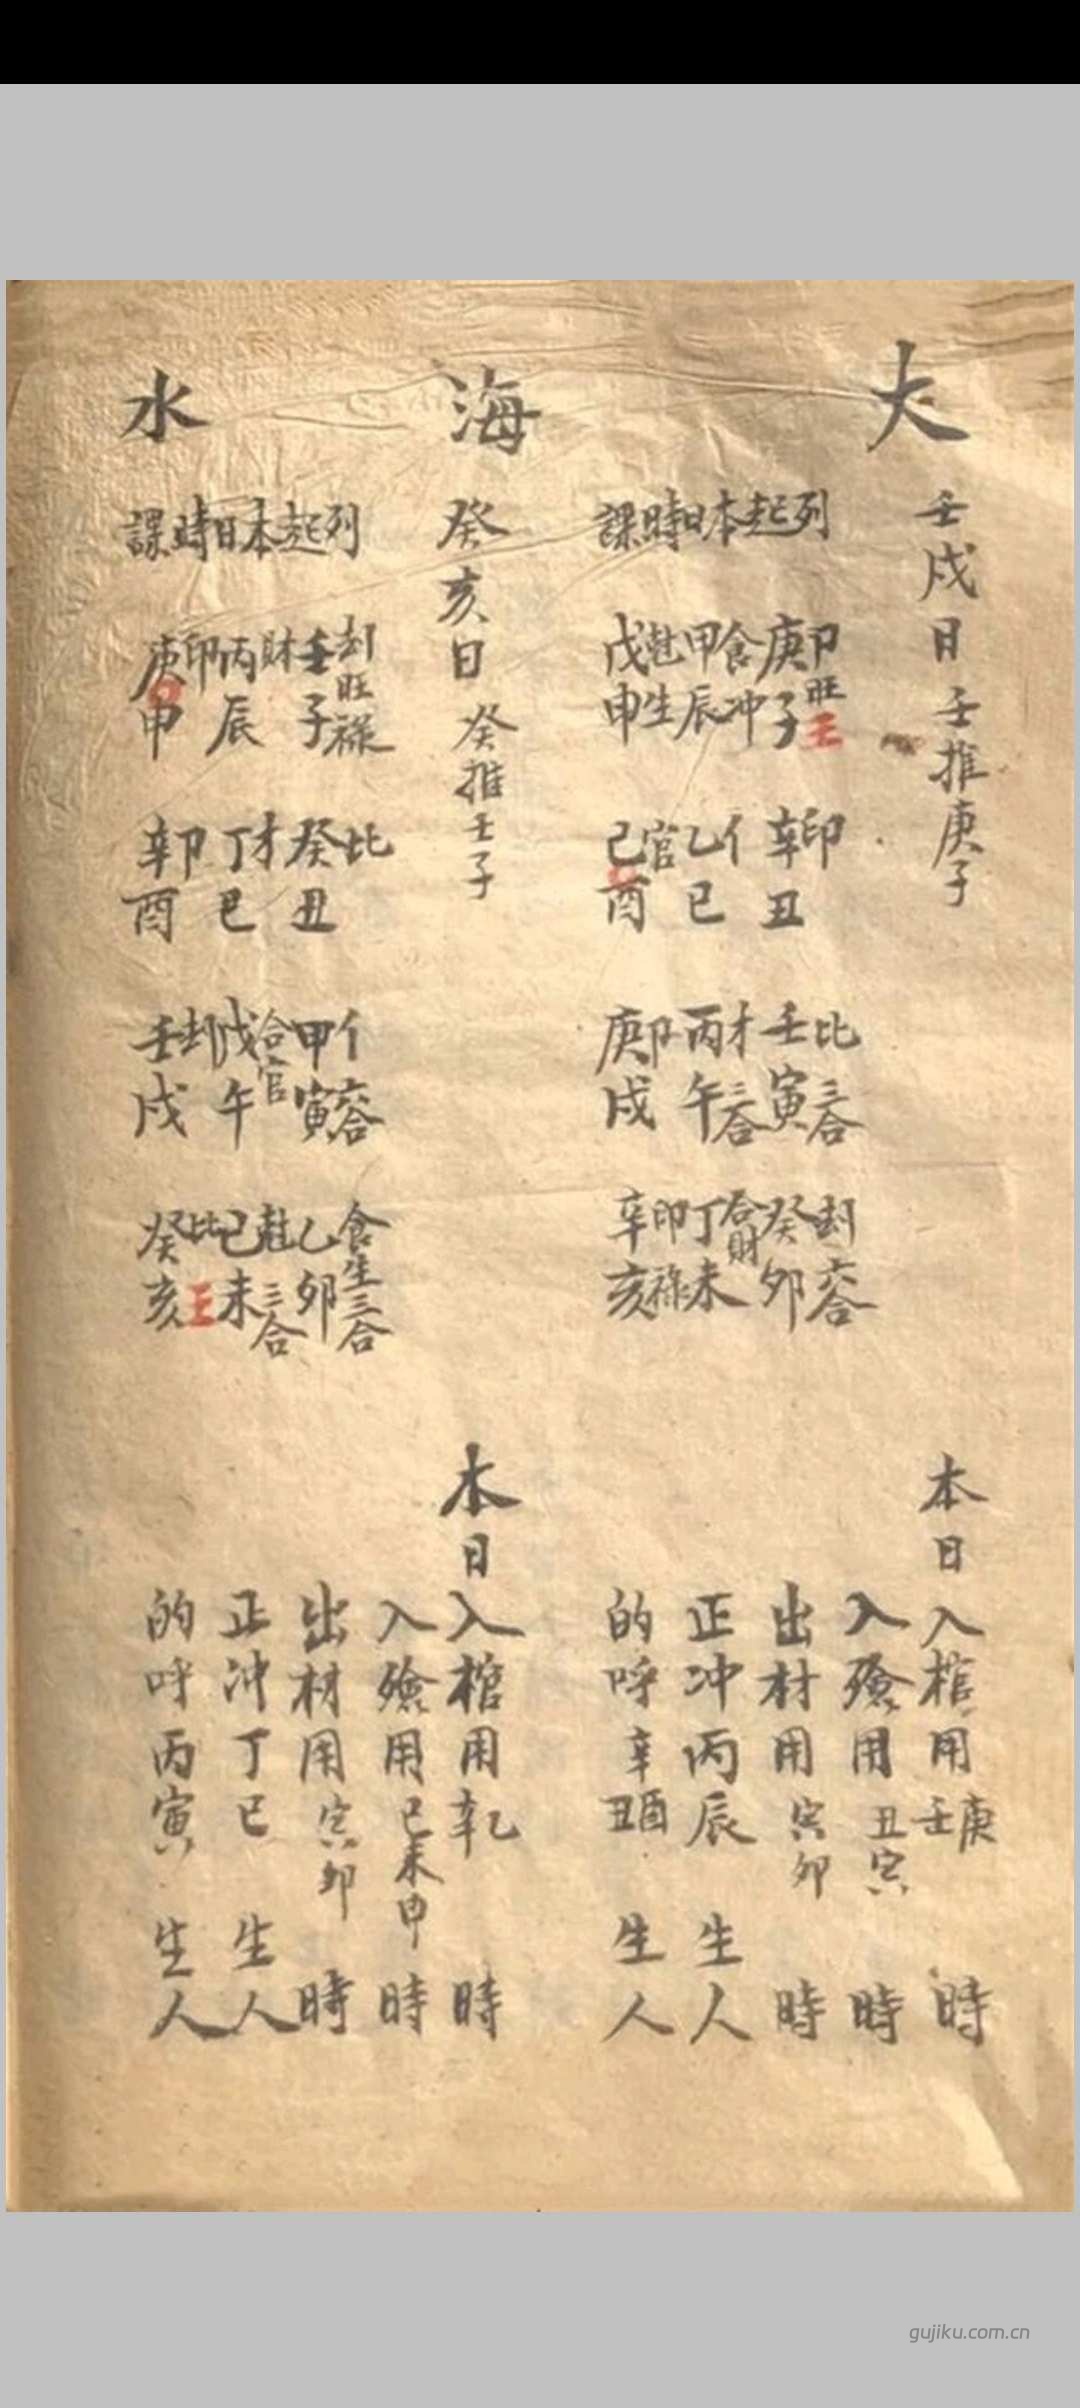 大海水
壬戌日壬推庚子
列起本日時課
庚子 卩旺王
辛丑 印
壬寅 比三合
癸卯 刦六合
甲辰 食冲
乙巳 亻
丙午 才三合
丁未 合財
戊申 魀生
己酉 官
庚戌 卩
辛亥 印祿
本日
入棺用壬庚時
入殮用丑寅時
出材用寅卯時
正冲丙辰生人
的呼辛丑酉生人
癸亥日癸推壬子
列起本日時課
壬子 刦旺祿
癸丑 比
甲寅 亻六合
乙卯 食生三合
丙辰 財
丁巳 才
戊午 合官
己未 魀三合
庚申 印
辛酉 卩
壬戌 刦
癸亥 比王
本日
入棺用辛乙時
入殮用巳未申時
出材用寅卯時
正冲丁巳生人
的呼丙寅生人
gujiku.com.cn